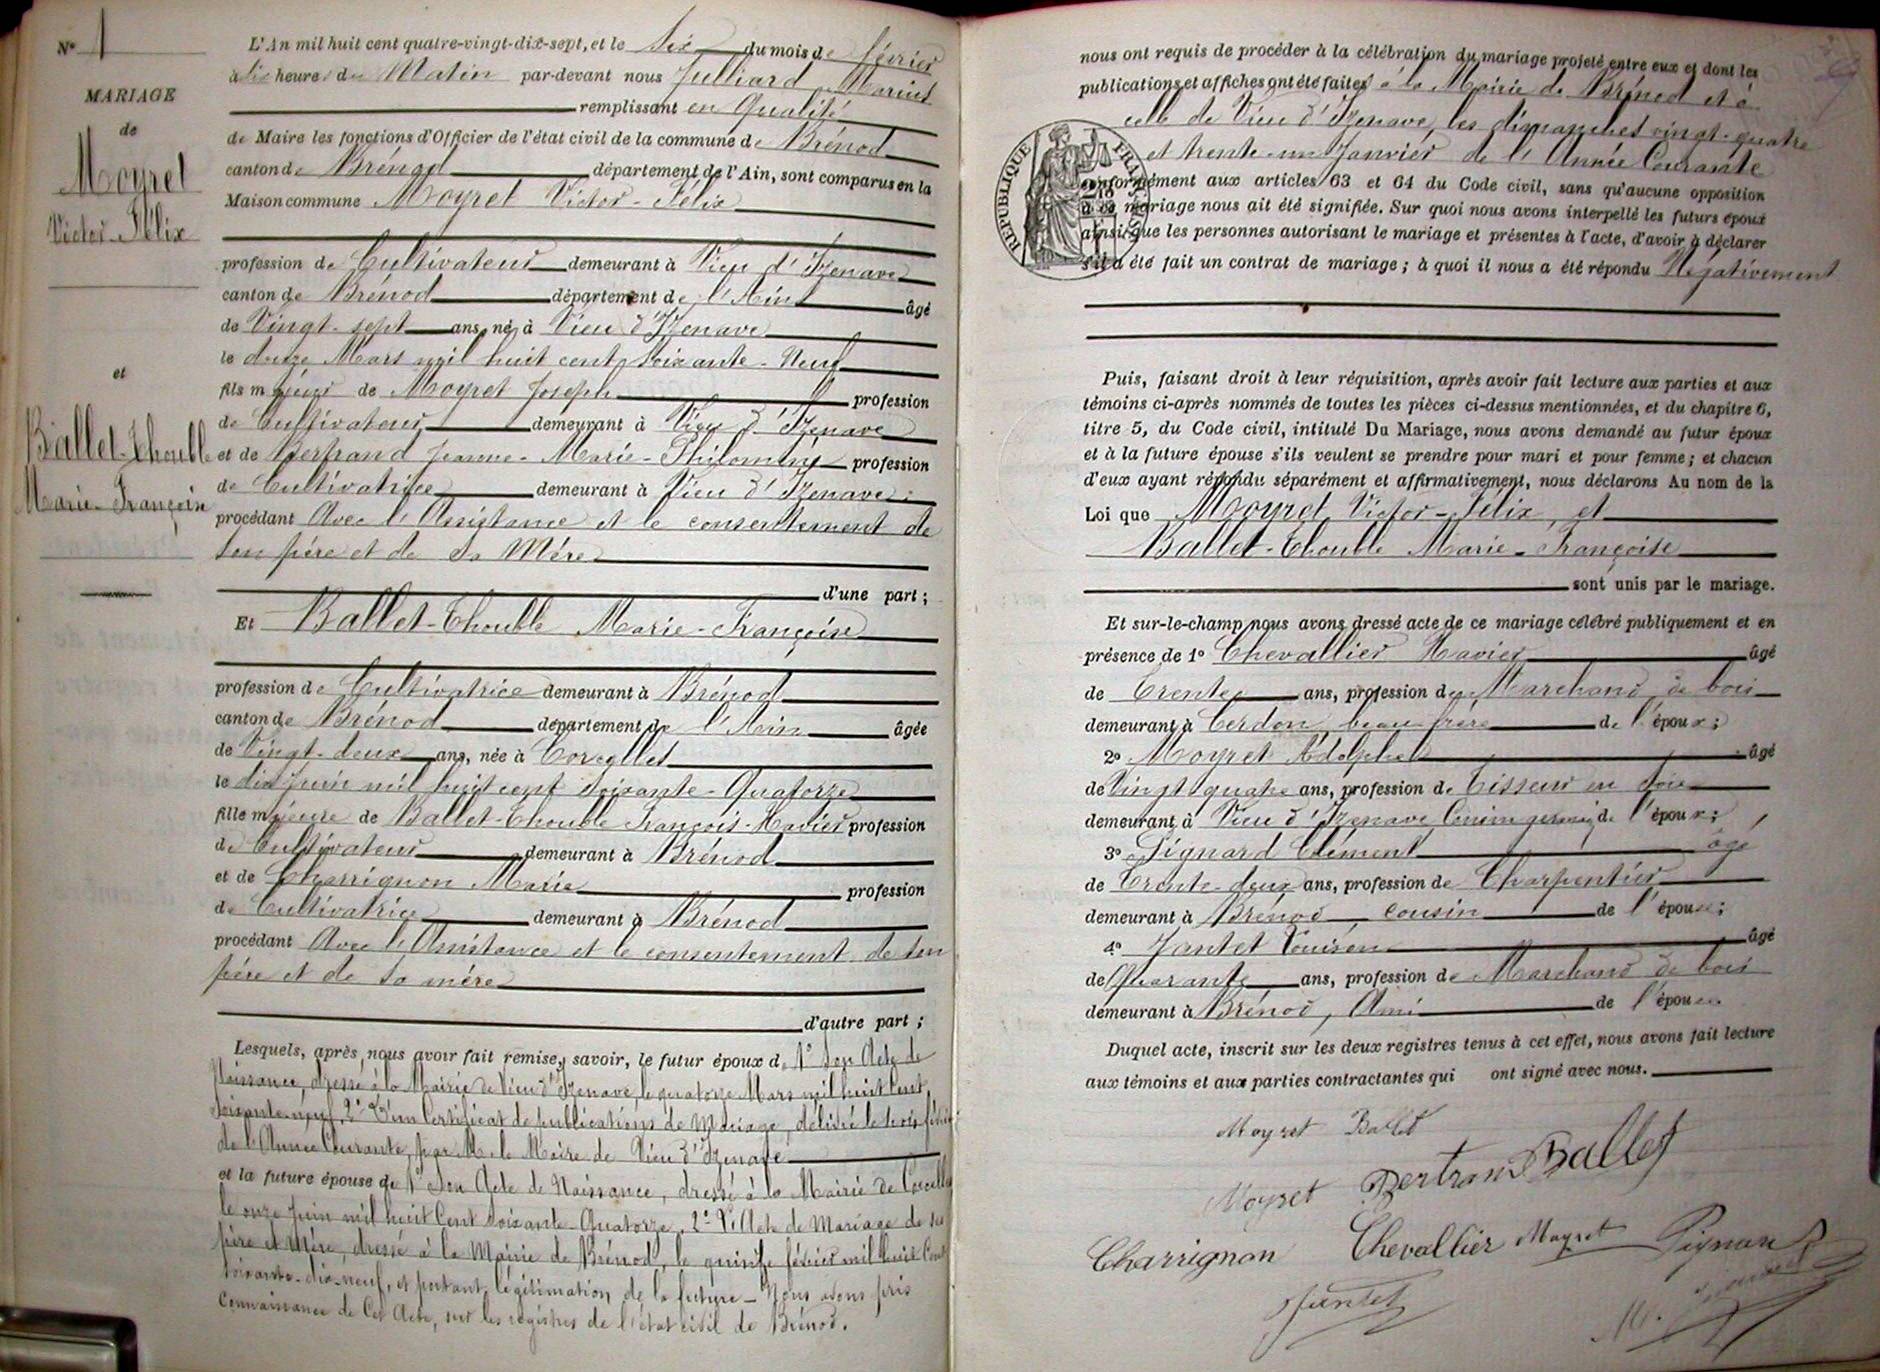 N° 1
MARIAGE
de
Moyret
Victor-Félix
et
Ballet-Thouble
Marie-Françoise
L'An mil huit cent quatre-vingt-dix-sept, et le Six du mois de février
à dix heures du Matin par-devant nous Julliard Marius
remplissant en Qualité
de Maire les fonctions d'Officier de l'état civil de la commune de Brénod
canton de Brénod département de l'Ain, sont comparus en la
Maison commune Moyret Victor-Félix
profession de Cultivateur demeurant à Vieu d'Izenave
canton de Brénod département de l'Ain âgé
de Vingt-sept ans, né à Vieu d'Izenave
le douze Mars mil huit cent soixante-Neuf
fils majeur de Moyret Joseph profession
de Cultivateur demeurant à Vieu d'Izenave
et de Bertrand Jeanne-Marie-Philomène profession
de Cultivatrice demeurant à Vieu d'Izenave
procédant Avec l'Assistance et le consentement de
son père et de sa Mère
d'une part ;
Et Ballet-Thouble Marie-Françoise
profession de Cultivatrice demeurant à Brénod
canton de Brénod département de l'Ain âgée
de Vingt-deux ans, née à Corcelles
le dix Juin mil huit cent soixante-Quatorze
fille majeure de Ballet-Thouble François-Xavier profession
de Cultivateur demeurant à Brénod
et de Charrignon Marie profession
de Cultivatrice demeurant à Brénod
procédant Avec l'Assistance et le consentement de son
père et de sa mère
d'autre part ;
Lesquels, après nous avoir fait remise, savoir, le futur époux de 1° Son Acte de
Naissance, dressé à la Mairie de Vieu d'Izenave, le quatorze Mars mil huit Cent
Soixante-neuf, 2° D'un Certificat de publications de Mariage, délivré le trois février
de l'Année Courante, par M. le Maire de Vieu d'Izenave
et la future épouse de 1° Son Acte de Naissance, dressé à la Mairie de Corcelles
le onze Juin mil huit Cent Soixante-Quatorze, 2° L'Acte de Mariage de ses
père et Mère, dressé à la Mairie de Brénod, le quinze février mil huit Cent
Soixante-dix-neuf, et portant légitimation de la future - Nous avons pris
Connaissance de Cet Acte, sur les registres de l'état civil de Brénod.
nous ont requis de procéder à la célébration du mariage projeté entre eux et dont les
publications et affiches ont été faites à la Mairie de Brénod et à
celle de Vieu d'Izenave, les dimanches vingt-quatre
et trente-un Janvier de l'Année Courante
conformément aux articles 63 et 64 du Code civil, sans qu'aucune opposition
à ce mariage nous ait été signifiée. Sur quoi nous avons interpellé les futurs époux
ainsi que les personnes autorisant le mariage et présentes à l'acte, d'avoir à déclarer
s'il a été fait un contrat de mariage ; à quoi il nous a été répondu Négativement
RÉPUBLIQUE FRANÇAISE
Puis, faisant droit à leur réquisition, après avoir fait lecture aux parties et aux
témoins ci-après nommés de toutes les pièces ci-dessus mentionnées, et du chapitre 6,
titre 5, du Code civil, intitulé Du Mariage, nous avons demandé au futur époux
et à la future épouse s'ils veulent se prendre pour mari et pour femme ; et chacun
d'eux ayant répondu séparément et affirmativement, nous déclarons Au nom de la
Loi que Moyret Victor-Félix, et
Ballet-Thouble Marie-Françoise
sont unis par le mariage.
Et sur-le-champ nous avons dressé acte de ce mariage célébré publiquement et en
présence de 1° Chevallier Xavier âgé
de Trente ans, profession de Marchand de bois
demeurant à Cerdon beau-frère de l'époux ;
2° Moyret Adolphe âgé
de Vingt-quatre ans, profession de Tisseur en soie
demeurant à Vieu d'Izenave Cousin germain de l'époux ;
3° Pignard Clément âgé
de Trente-deux ans, profession de Charpentier
demeurant à Brénod cousin de l'épouse ;
4° Jantet Louison âgé
de Quarante ans, profession de Marchand de bois
demeurant à Brénod, Ami de l'épouse
Duquel acte, inscrit sur les deux registres tenus à cet effet, nous avons fait lecture
aux témoins et aux parties contractantes qui ont signé avec nous.
Moyret Ballet
Moyret Bertrand Ballet
Charrignon Chevallier Moyret Pignard
Jantet